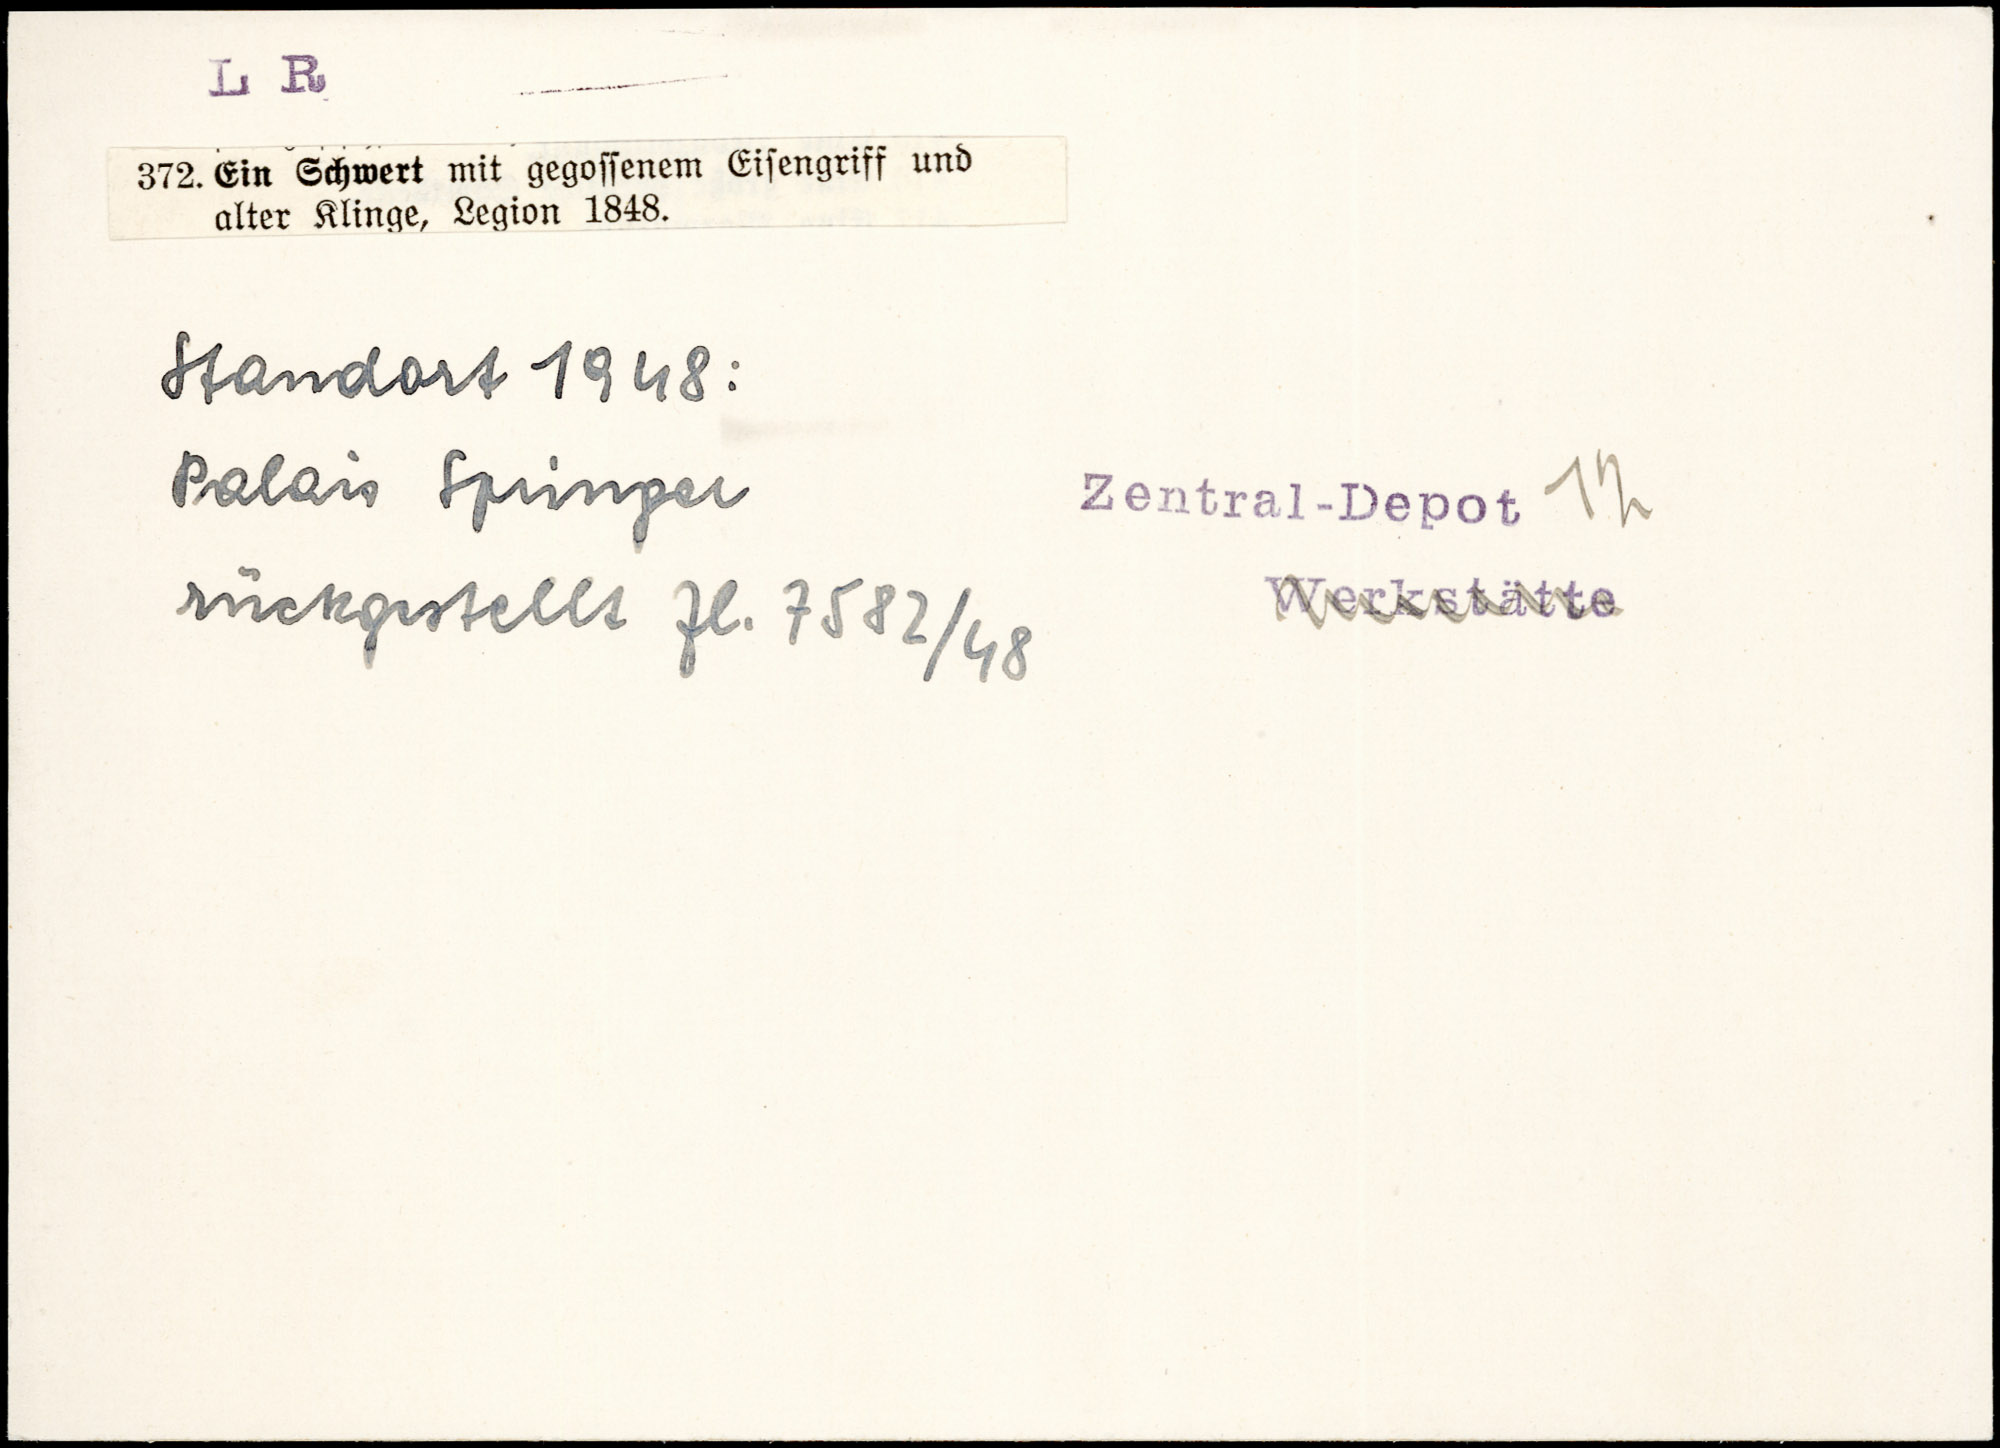 L R
372. Ein Schwert mit gegossenem Eisengriff und
alter Klinge, Legion 1848.
Standort 1948:
Palais Springer
Zentral-Depot
rückgestellt Zl. 7582/48
Werkstätte